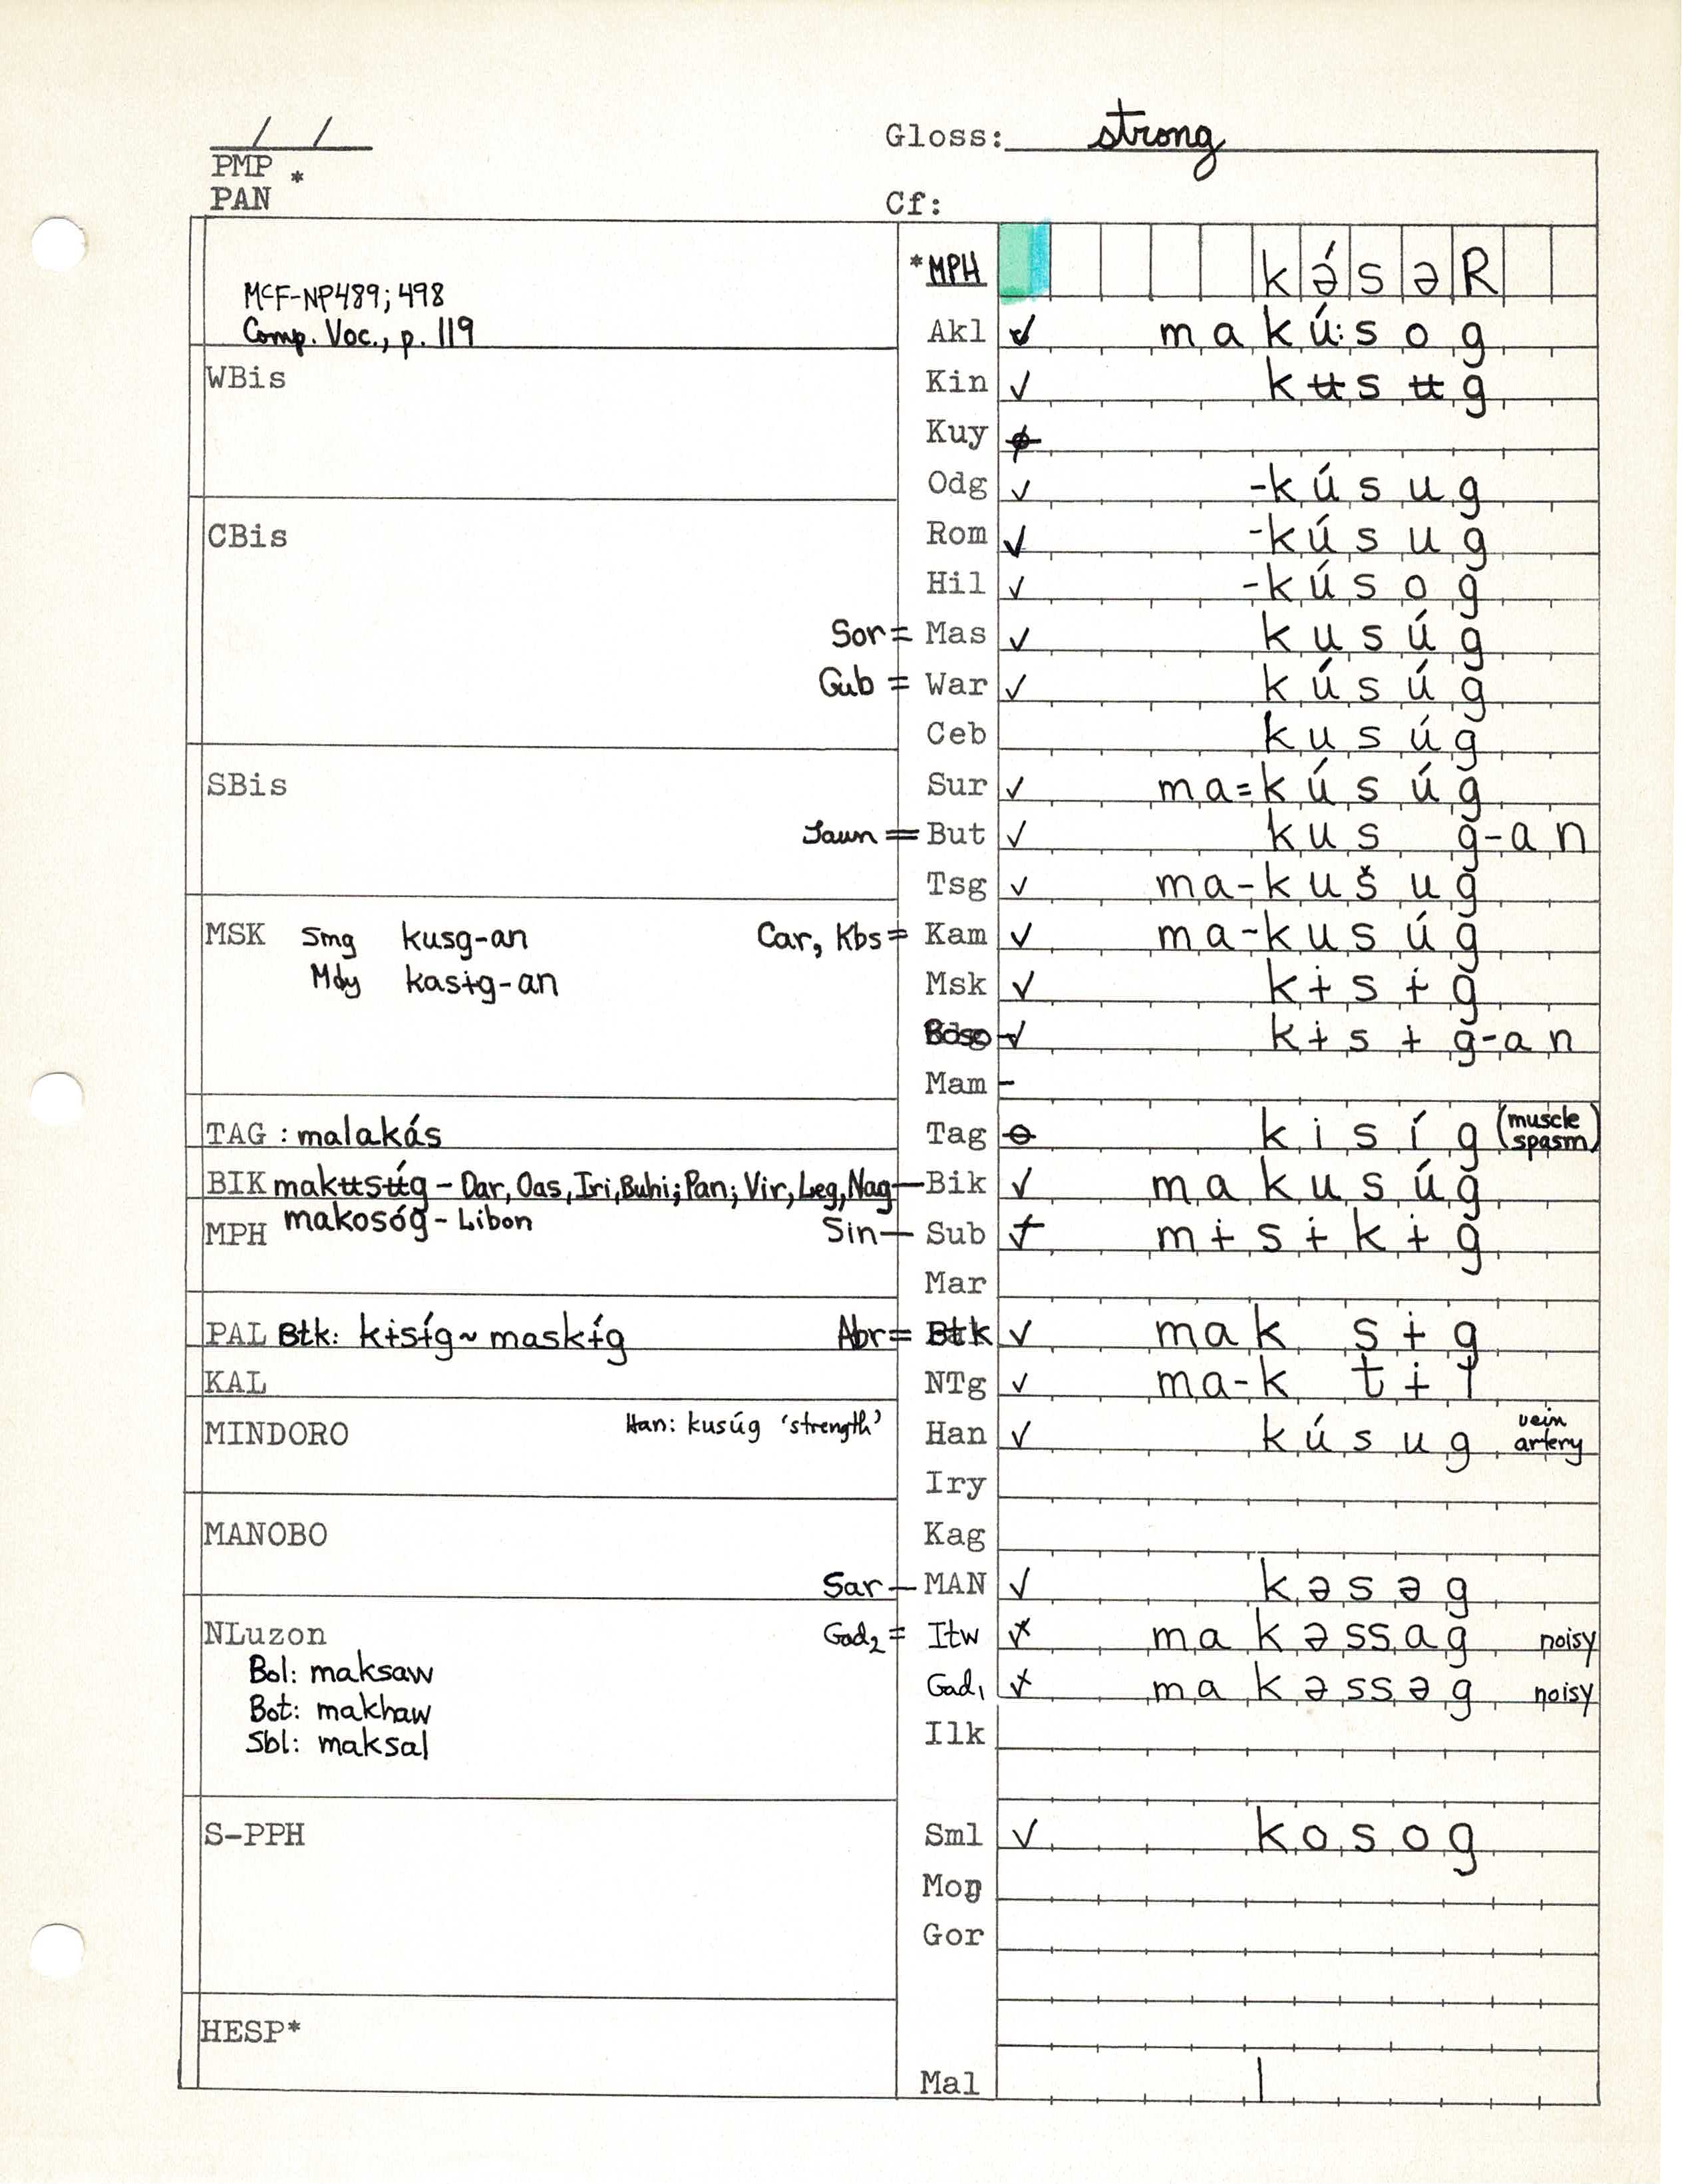 / /
PMP *
PAN
Gloss: strong
Cf:
McF-NP489; 498
Comp. Voc., p. 119
*MPH kə́səR
Akl ✓ makú:sog
WBis
Kin ✓ kʉsʉg
Kuy
Odg ✓ -kúsug
CBis
Rom ✓ -kúsug
Hil ✓ -kúsog
Sor = Mas ✓ kusúg
Gub = War ✓ kúsúg
Ceb kusúg
SBis
Sur ✓ ma=kúsúg
Jaun = But ✓ kus g-an
Tsg ✓ ma-kušug
MSK Smg kusg-an Car, Kbs = Kam ✓ ma-kusúg
Mdy kasɨg-an
Msk ✓ kɨsɨg
✓ kɨsɨg-an
Mam -
TAG : malakás
Tag kisíg (muscle spasm)
BIK makʉsʉ́g - Dar, Oas, Iri, Buhi; Pan; Vir, Leg, Nag — Bik ✓ makusúg
makosóg - Libon
MPH Sin — Sub mɨsɨkɨg
Mar
PAL Btk: kɨsɨ́g ~ maskɨ́g Abr = Btk ✓ mak sɨg
KAL
NTg ✓ ma-k tɨl
MINDORO Han: kusúg 'strength' Han ✓ kúsug vein artery
Iry
MANOBO
Kag
Sar — MAN ✓ kəsəg
NLuzon Gad₂ = Itw makəssag noisy
Bol: maksaw
Gad₁ makəssəg noisy
Bot: makhaw
Sbl: maksal
Ilk
S-PPH
Sml ✓ kosog
Moŋ
Gor
HESP*
Mal